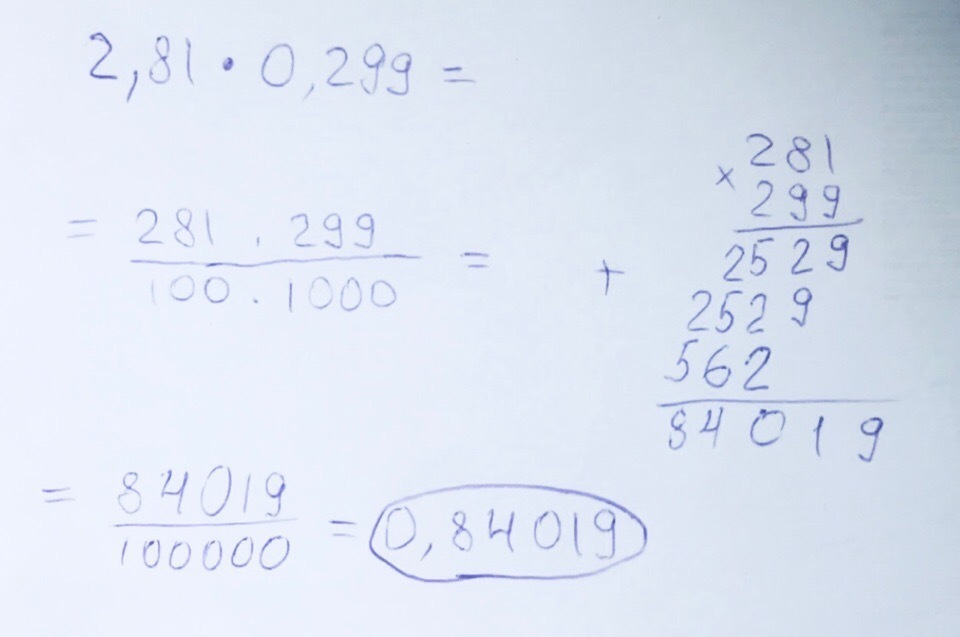 2,81 · 0,299 =
= 281 . 299 =
100 . 1000
× 281
299
+ 2529
2529
562
84019
= 84019 = 0,84019
100000